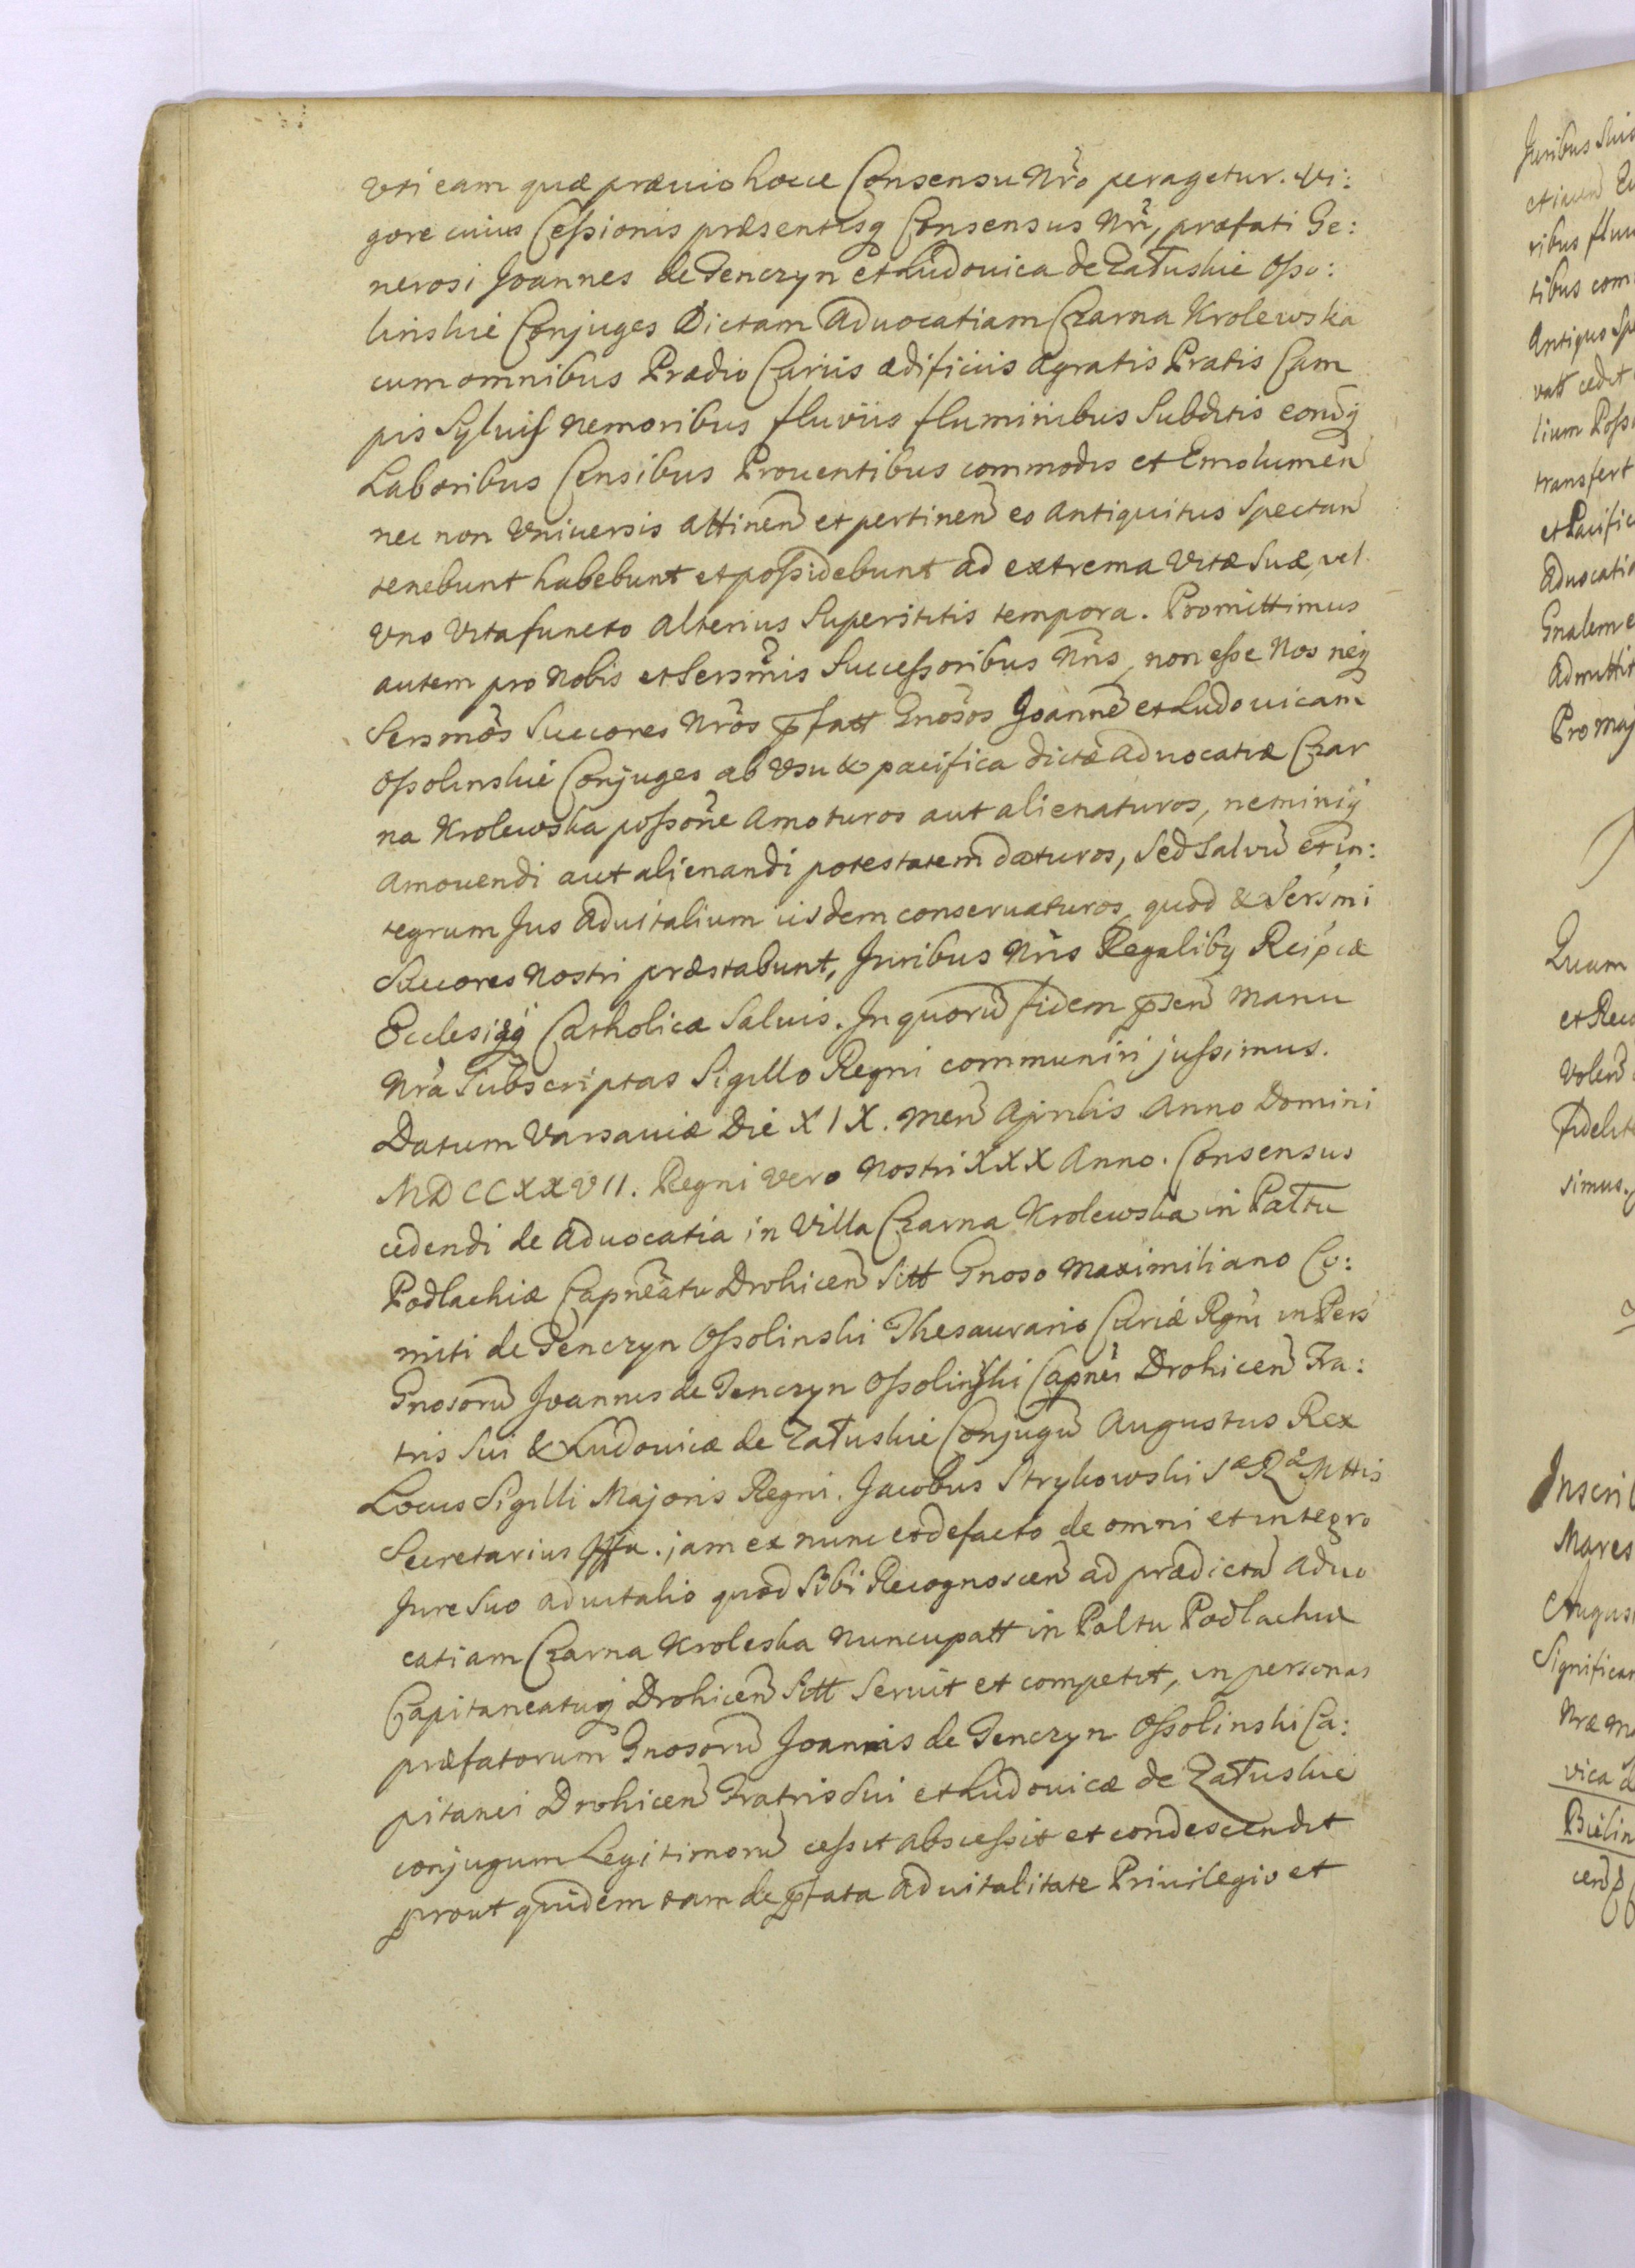 Uti eam quæ prævio hocce Consensu Nr̃o peragetur. Vi:
gore cuius Cessionis præsentisq Consensus Nr̃i, præfati Ge:
nerosi Joannes de Tenczyn et Ludovica de Załuskie Osso:
linskie Conjuges Dictam Advocatiam Czarna Krolewska
cum omnibus Prædio Curiis ædificiis Agratis Pratis Cam
pis Sylvis Nemoribus fluviis fluminibus Subditis eorũdq
Laboribus Censibus Proventibus commodis et Emolumen̄
nec non Universis attinen̄ et pertinen̄ eo Antiquitus Spectan̄
tenebunt habebunt et possidebunt ad extrema Vitæ Suæ, vel
Uno Vita functo Alterius Superstitis tempora. Promittimus
autem pro Nobis et Sersm̃is Successoribus Nr̃is, non esse Nos neq
Sersmõs Succores Nr̃os p̃fatt Gnõsos Joannẽ et Ludovicam
Ossolinskie Conjuges ab Usu & pacifica dictæ Advocatiæ Czar
na Krolewska possõne Amoturos aut alienaturos, neminiq
Amovendi aut alienandi potestatem daturos, Sed Salvũ et in:
tegrum Jus Advitalium iisdem conservaturos, quod & Sersm̃i
Succores Nostri præstabunt, Juribus Nr̃is Regalibq Reipcæ
Ecclesięq Catholicæ Salvis. In quorũ fidem p̃sen̄ Manu
Nr̃a Subscriptas Sigillo Regni communiri jussimus.
Datum Varsaviæ Die XIX. Men̄ Aprilis Anno Domini
MDCCXXVII. Regni Vero Nostri XXX Anno. Consensus
cedendi de Advocatia in Villa Czarna Krolewska in Pałtu
Podlachiæ Capneãtu Drohicen̄ Sitt Gnoso Maximiliano Co:
miti de Tenczyn Ossolinski Thesaurario Curiæ Rgni in Pers
Gnosorũ Joannis de Tenczyn Ossolinski Capnei Drohicen̄ Fra:
tris Sui & Ludovicæ de Załuskie Conjugũ Augustus Rex
Locus Sigilli Majoris Regni. Jacobus Strykowski Sæ Ræ Mttis
Secretarius mppa. jam ex nunc et de facto de omni et integro
Jure Suo advitalio quod Sibi Recognoscen̄ ad prædictã Advo
catiam Czarna Kroleska Nuncupatt in Paltu Podlachiæ
Capitaneatuq Drohicen̄ Sitt Servit et competit, in personas
præfatorum Gnosorũ Joannis de Tenczyn Ossolinski Ca:
pitanei Drohicen̄ Fratris Sui et Ludovicæ de Załuskie
conjugum Legitimorũ cessit abscessit et condescendit
prout quidem tam de p̃fata Advitalitate Privilegio et
Juribus Suis
tibus com
Antiquo
transfert
Pro Maj
et Reco
simus.
Inscri
Mares
Augus
Significa
vica
Bielin